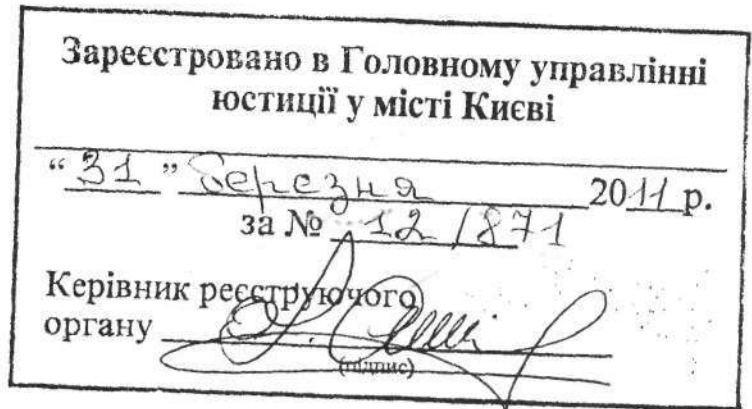 Зареєстровано в Головному управлінні
юстиції у місті Києві
“ 31 ” березня 2011 р.
за № 12/871
Керівник реєструючого
органу
(підпис)